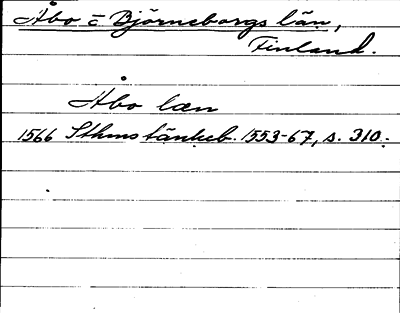 Åbo o Björneborgs län,
Finland.
Åbo læn
1566 Sthms tänkeb. 1553-67, s. 310.